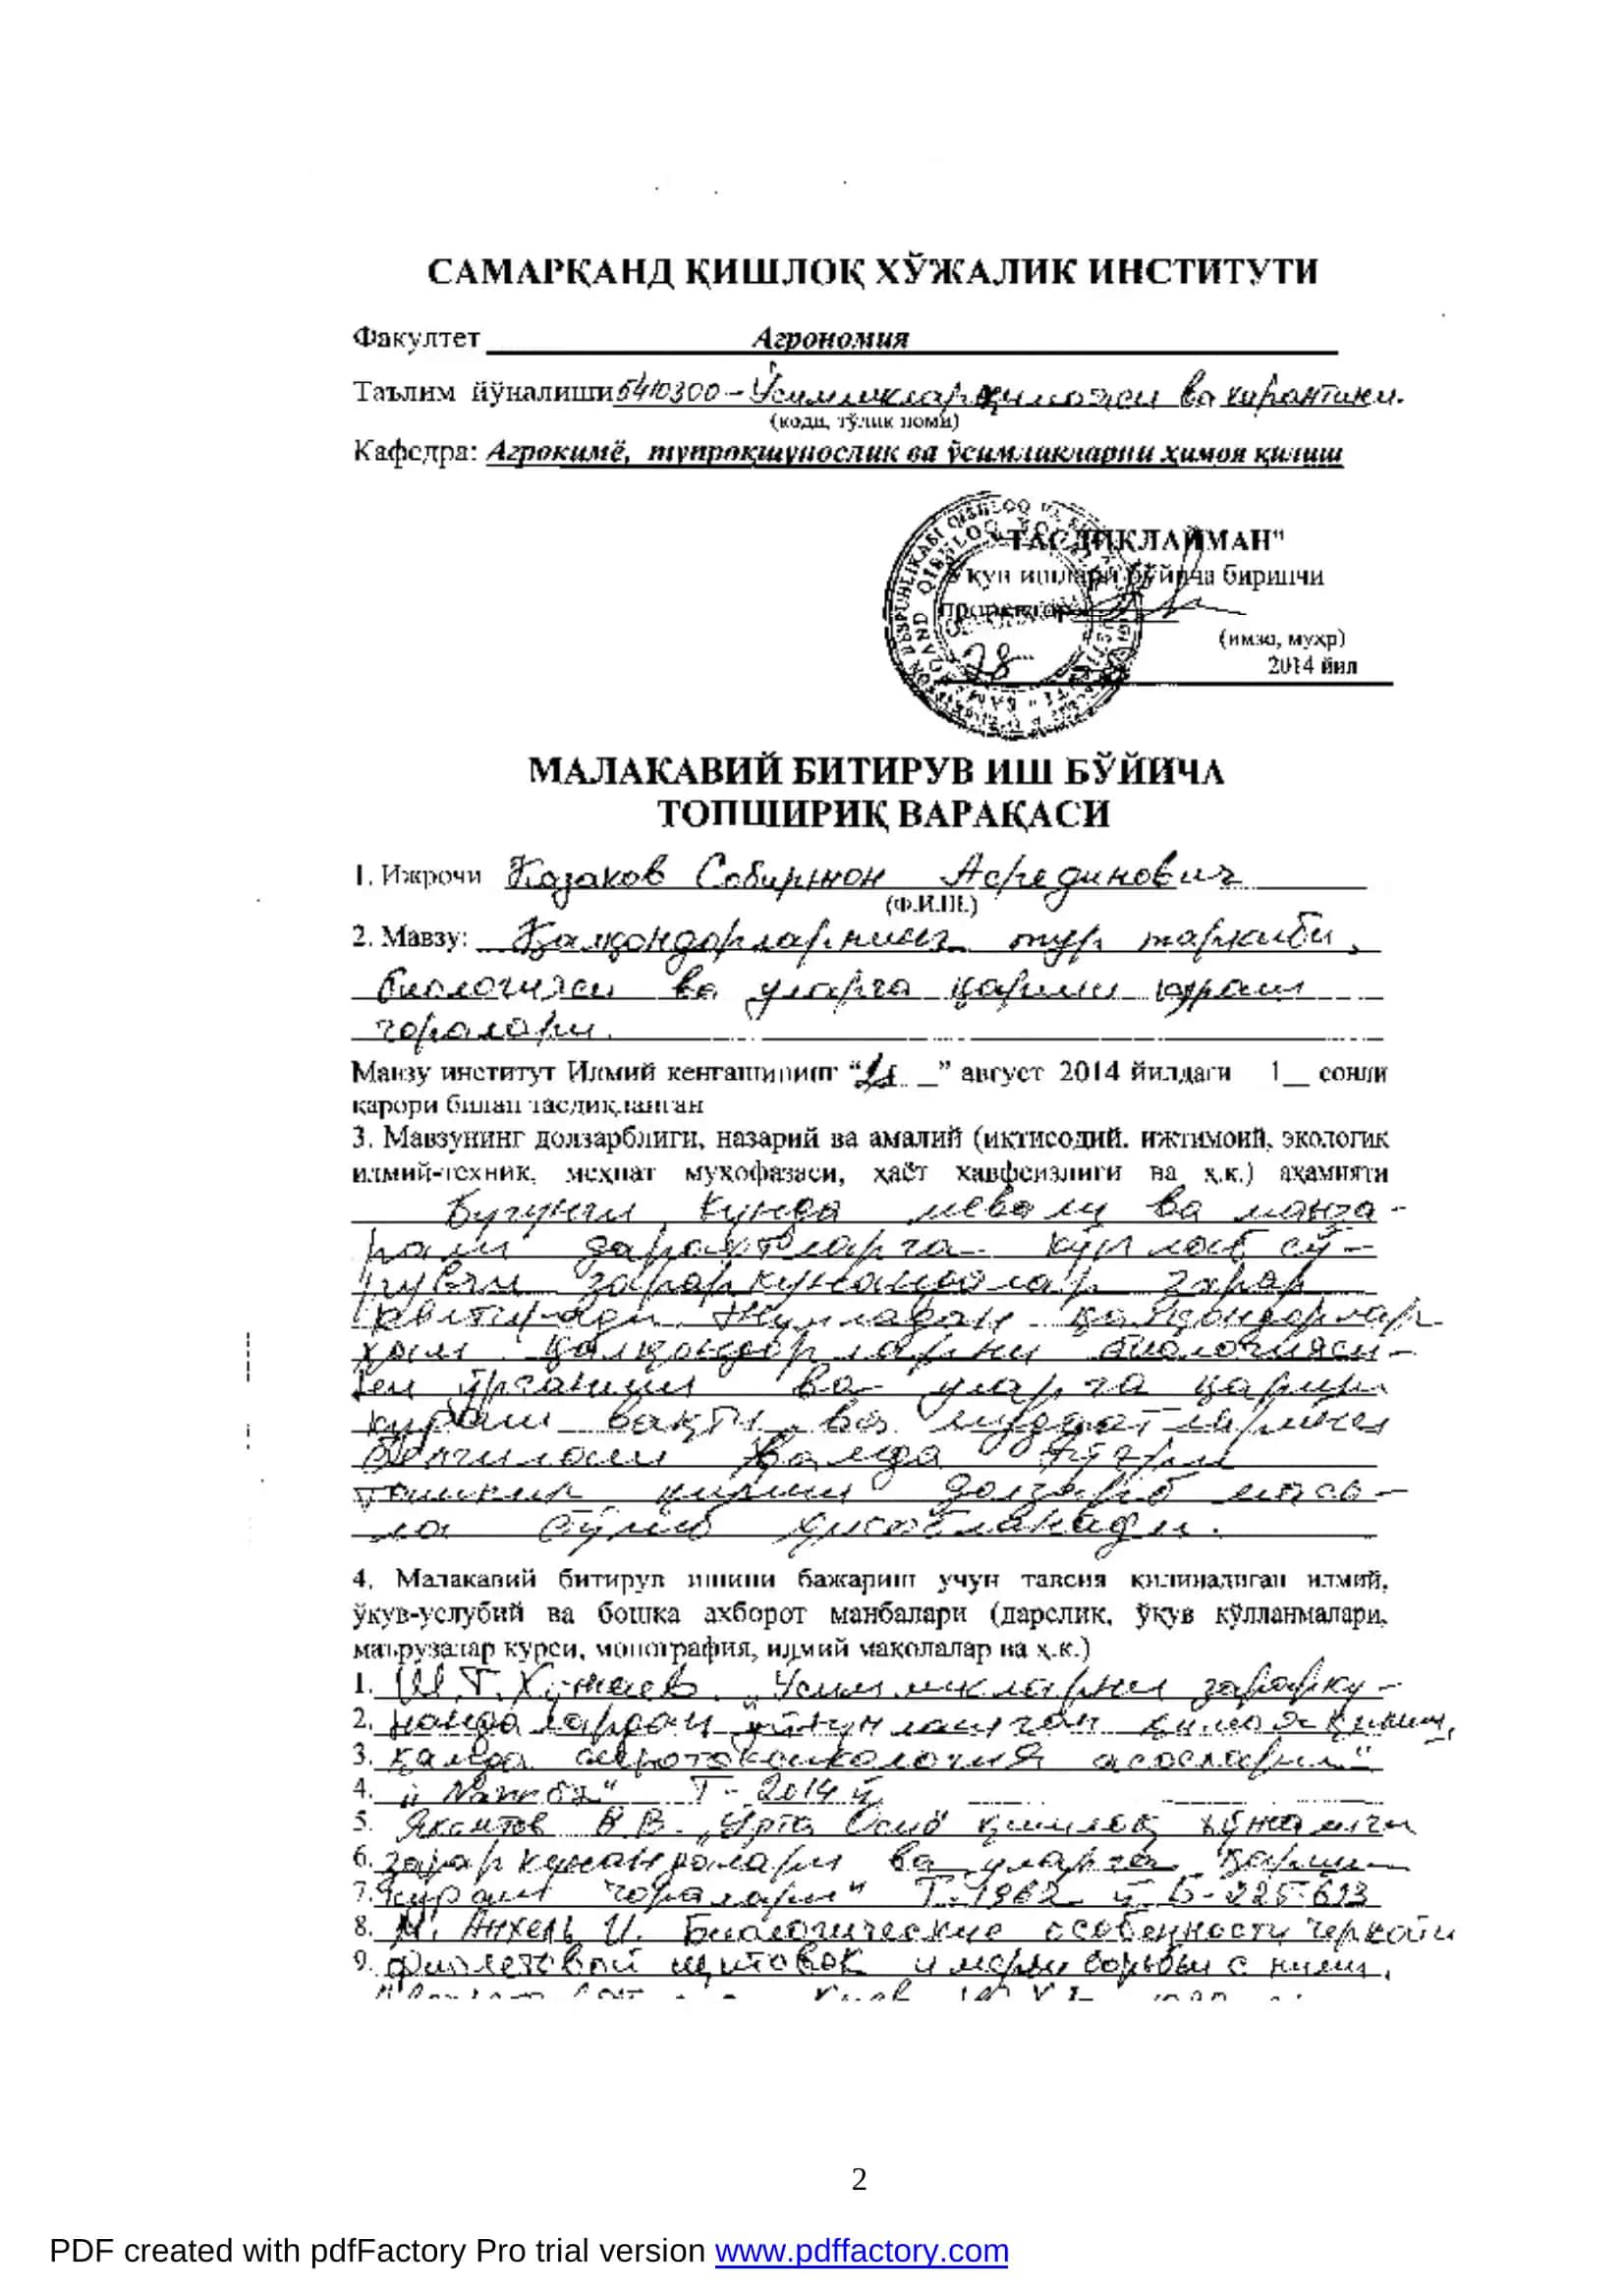 САМАРҚАНД ҚИШЛОҚ ХЎЖАЛИК ИНСТИТУТИ
Факултет Агрономия
Таълим йўналиши 5410300 - Ўсимликлар ҳимояси ва карантини.
(коди, тўлиқ номи)
Кафедра: Агрокимё, тупроқшунослик ва ўсимликларни ҳимоя қилиш
"ТАСДИҚЛАЙМАН"
Ўқув ишлари бўйича биринчи
проректор
(имзо, муҳр)
28 2014 йил
МАЛАКАВИЙ БИТИРУВ ИШ БЎЙИЧА
ТОПШИРИҚ ВАРАҚАСИ
1. Ижрочи Казаков Собиржон Асрединович
(Ф.И.Ш.)
2. Мавзу: Қалқондорларнинг тур таркиби,
биологияси ва уларга қарши кураш
чоралари.
Мавзу институт Илмий кенгашининг “ ” август 2014 йилдаги 1 сонли
қарори билан тасдиқланган
3. Мавзунинг долзарблиги, назарий ва амалий (иқтисодий, ижтимоий, экологик
илмий-техник, меҳнат муҳофазаси, ҳаёт хавфсизлиги ва ҳ.к.) аҳамияти
Бугунги кунда мевали ва манза-
рали дарахтларга кўплаб сў-
рувчи зараркунандалар зарар
Жумладан қалқондорлар
ҳам қалқондорларни биологияси-
ни ўрганиш ва уларга қарши
кураш вақти ва муддатларини
белгилаш ҳамда тўғри
ташкил қилиш долзарб маса-
ла бўлиб ҳисобланади.
4. Малакавий битирув ишини бажариш учун тавсия қилинадиган илмий,
ўқув-услубий ва бошқа ахборот манбалари (дарслик, ўқув қўлланмалари,
маърузалар курси, монография, илмий мақолалар ва ҳ.к.)
1. Ш.Т. Хўжаев. „Ўсимликларни зарарку-
2. нандалардан уйғунлашган ҳимоя қилиш,
3. ҳамда агротоксикология асослари"
4. „Navro'z" Т- 2014 й
5. Яхонтов В.В. „Ўрта Осиё қишлоқ хўжалиги
6. зараркунандалари ва уларга қарши
7. кураш чоралари" Т-1962 й Б-225-693
8. М. Анхель И. Биологические особенности
9. фиолетовой щитовок и меры борьбы с ними.
2
PDF created with pdfFactory Pro trial version www.pdffactory.com